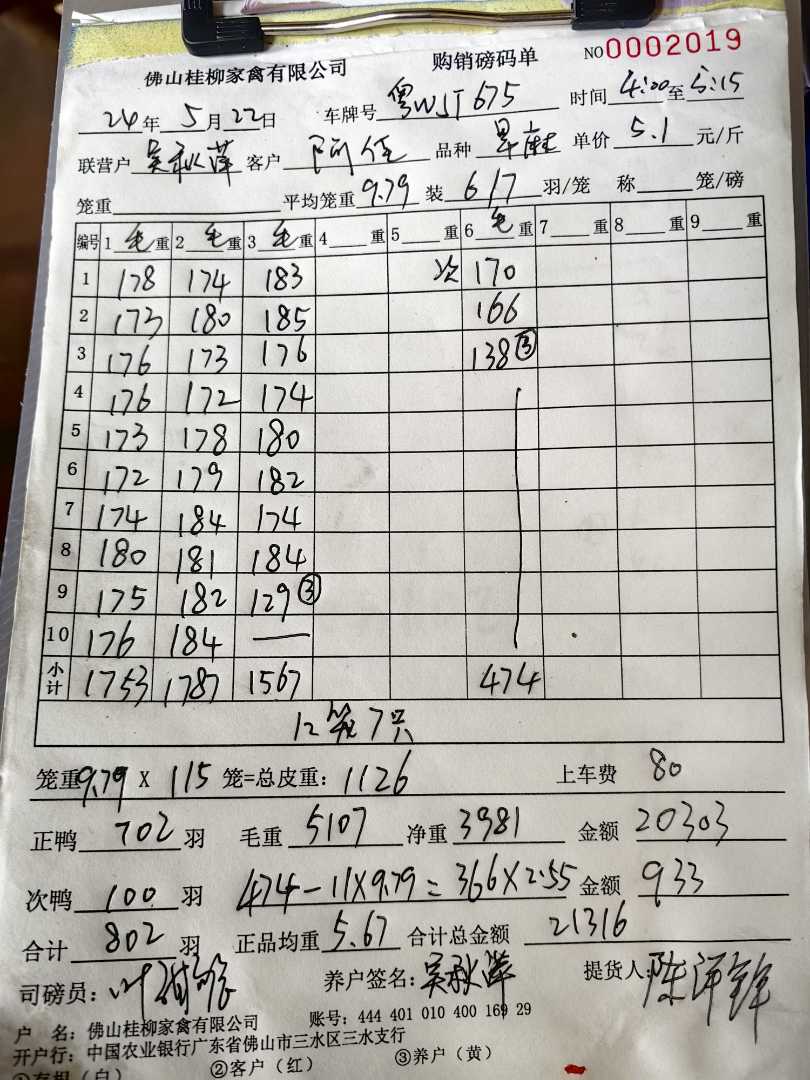 佛山桂柳家禽有限公司 购销磅码单 NO0002019
24年5月22日 车牌号 粤WJT675 时间 4:00至5:15
联营户 吴秋萍 客户 阿佳 品种 单价 5.1 元/斤
笼重 平均笼重 9.79 装 6/7 羽/笼 称 笼/磅
编号 1 毛 重 2 毛 重 3 毛 重 4 重 5 重 6 毛 重 7 重 8 重 9 重
1 178 174 183 次 170
2 173 180 185 166
3 176 173 176 138③
4 176 172 174
5 173 178 180
6 172 179 182
7 174 184 174
8 180 181 184
9 175 182 129③
10 176 184 —
小计 1753 1787 1567 474
12笼7只
笼重 9.79 X 115 笼=总皮重: 1126 上车费 80
正鸭 702 羽 毛重 5107 净重 3981 金额 20303
次鸭 100 羽 474-11X9.79=366X2.55 金额 933
合计 802 羽 正品均重 5.67 合计总金额 21316
司磅员: 养户签名: 吴秋萍 提货人:
户 名: 佛山桂柳家禽有限公司 账号: 444 401 010 400 169 29
开户行: 中国农业银行广东省佛山市三水区三水支行
①存根(白) ②客户(红) ③养户(黄)